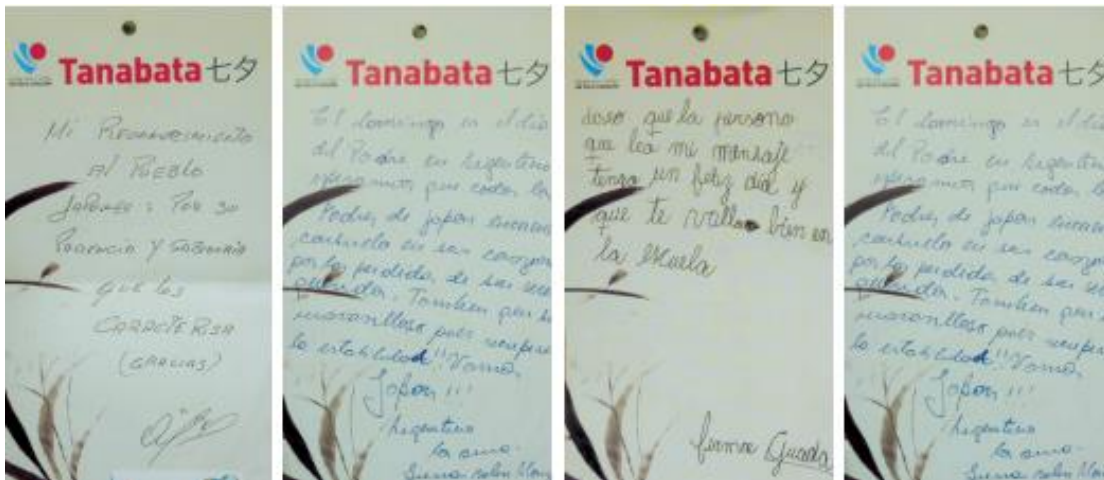 Tanabata七夕
Mi Reconocimiento
Al Pueblo
Japones: Por su
Paciencia y Sabiduria
que los
Caracterisa
(Gracias)
Tanabata七夕
El domingo es el día
del Padre en Argentina
esperamos que todos los
Padres de japon encuen
consuelo en sus corazon
por la perdida de sus sere
queridos. Tambien que e
maravilloso pais recupere
la estabilidad!! Vamos
Japon!!!
Argentina
los ama.
Tanabata七夕
deseo que la persona
que lea mi mensaje
tenga un feliz día y
que te valla bien en
la escuela
firma Guada
Tanabata七夕
El domingo es el día
del Padre en Argentin
esperamos que todos l
Padres de japon encuen
consuelo en sus corazon
por la perdida de sus se
queridos. Tambien que e
maravilloso pais recupe
la estabilidad!! Vamos
Japon!!!
Argentina
los ama.